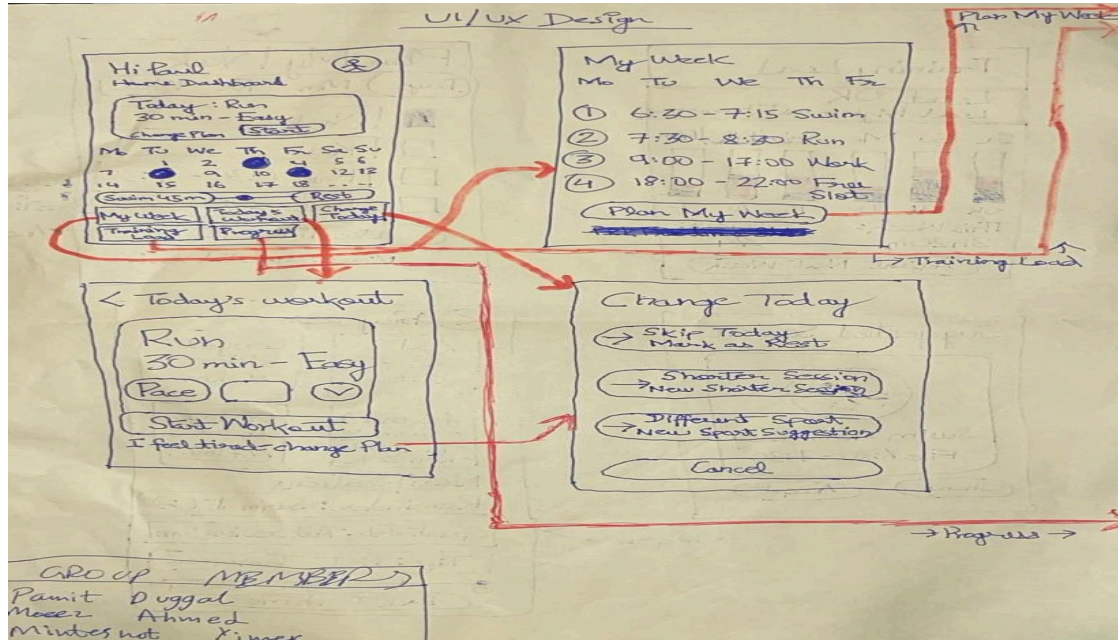 UI/UX Design
Plan My Week
Hi Paul
Home Dashboard
Today : Run
30 min - Easy
Change Plan Start
Mo Tu We Th Fr Sa Su
1 2 4 5 6
7 9 10 12 13
14 15 16 17 18 ....
Swim 45m Rest
My Week Today's Workout Change Today
Training Load Progress
My Week
Mo Tu We Th Fr
① 6:30 - 7:15 Swim
② 7:30 - 8:30 Run
③ 9:00 - 17:00 Work
④ 18:00 - 22:00 Free Slot
Plan My Week
Training Load
< Today's workout
Run
30 min - Easy
Pace
Start Workout
I feel tired - change Plan
Change Today
→ Skip Today
Mark as Rest
Shorter Session
→ New Shorter Session
→ Different Sport
New Sport Suggestion
Cancel
→ Progress →
GROUP MEMBERS
Pamit Duggal
Moeez Ahmed
Mintesnot